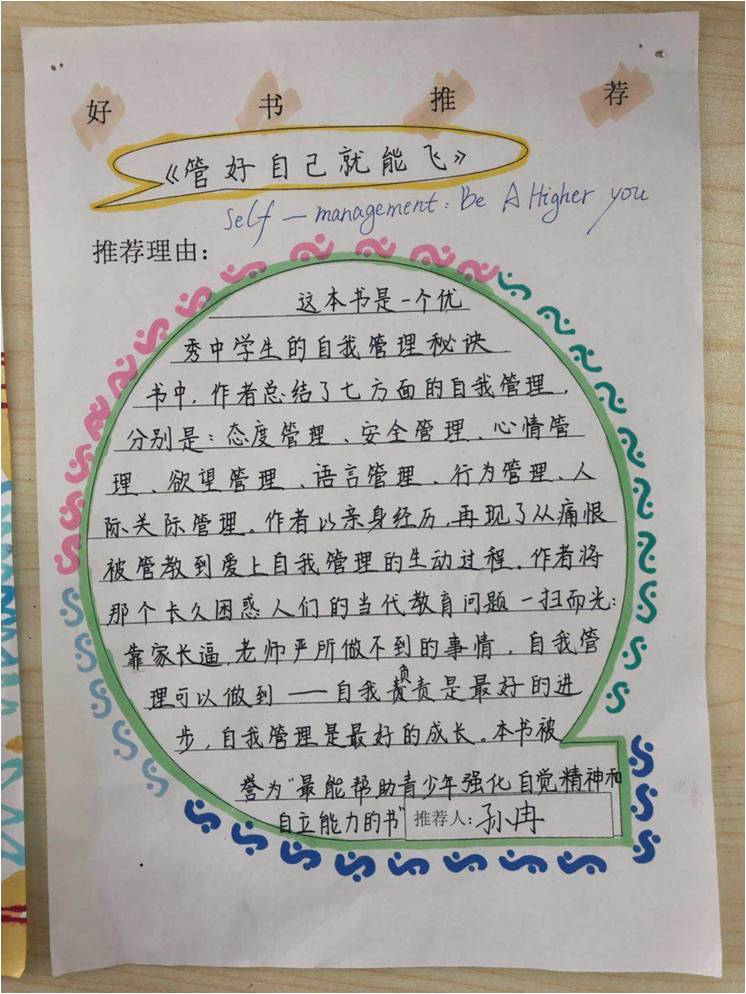 好 书 推 荐
《管好自己就能飞》
Self — management: Be A Higher you
推荐理由：
这本书是一个优
秀中学生的自我管理秘诀
书中，作者总结了七方面的自我管理，
分别是：态度管理、安全管理、心情管
理、欲望管理、语言管理、行为管理、人
际关际管理。作者以亲身经历，再现了从痛恨
被管教到爱上自我管理的生动过程。作者将
那个长久困惑人们的当代教育问题一扫而光：
靠家长逼，老师严所做不到的事情，自我管
理可以做到——自我负责是最好的进
步，自我管理是最好的成长。本书被
誉为“最能帮助青少年强化自觉精神和
自立能力的书”
推荐人：孙冉